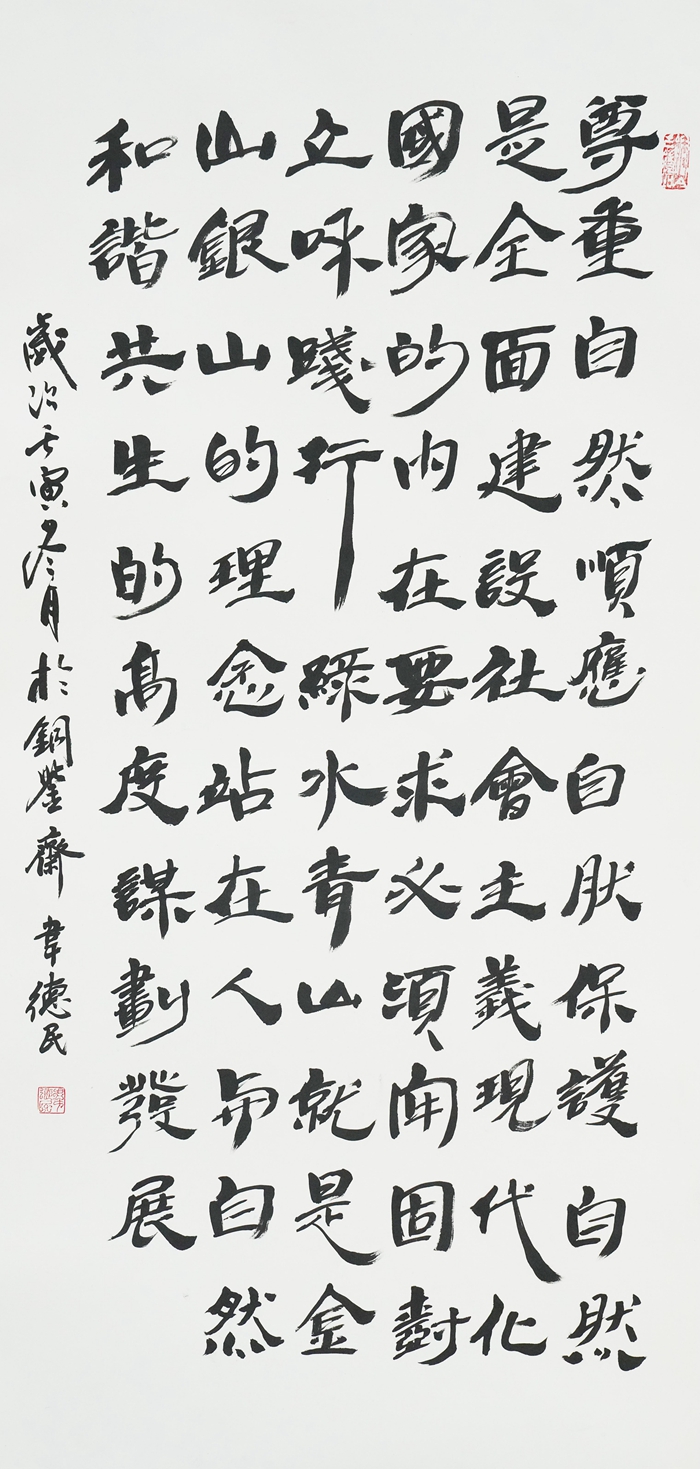 尊重自然順應自肰保護自然
是全面建設社會主義現代化
國家的內在要求必須牢固尌
立咊踐行綠水青山就是金
山銀山的理念站在人與自然
和諧共生的高度謀劃發展
歲次壬寅冬月於銅鑒齋 韋德民